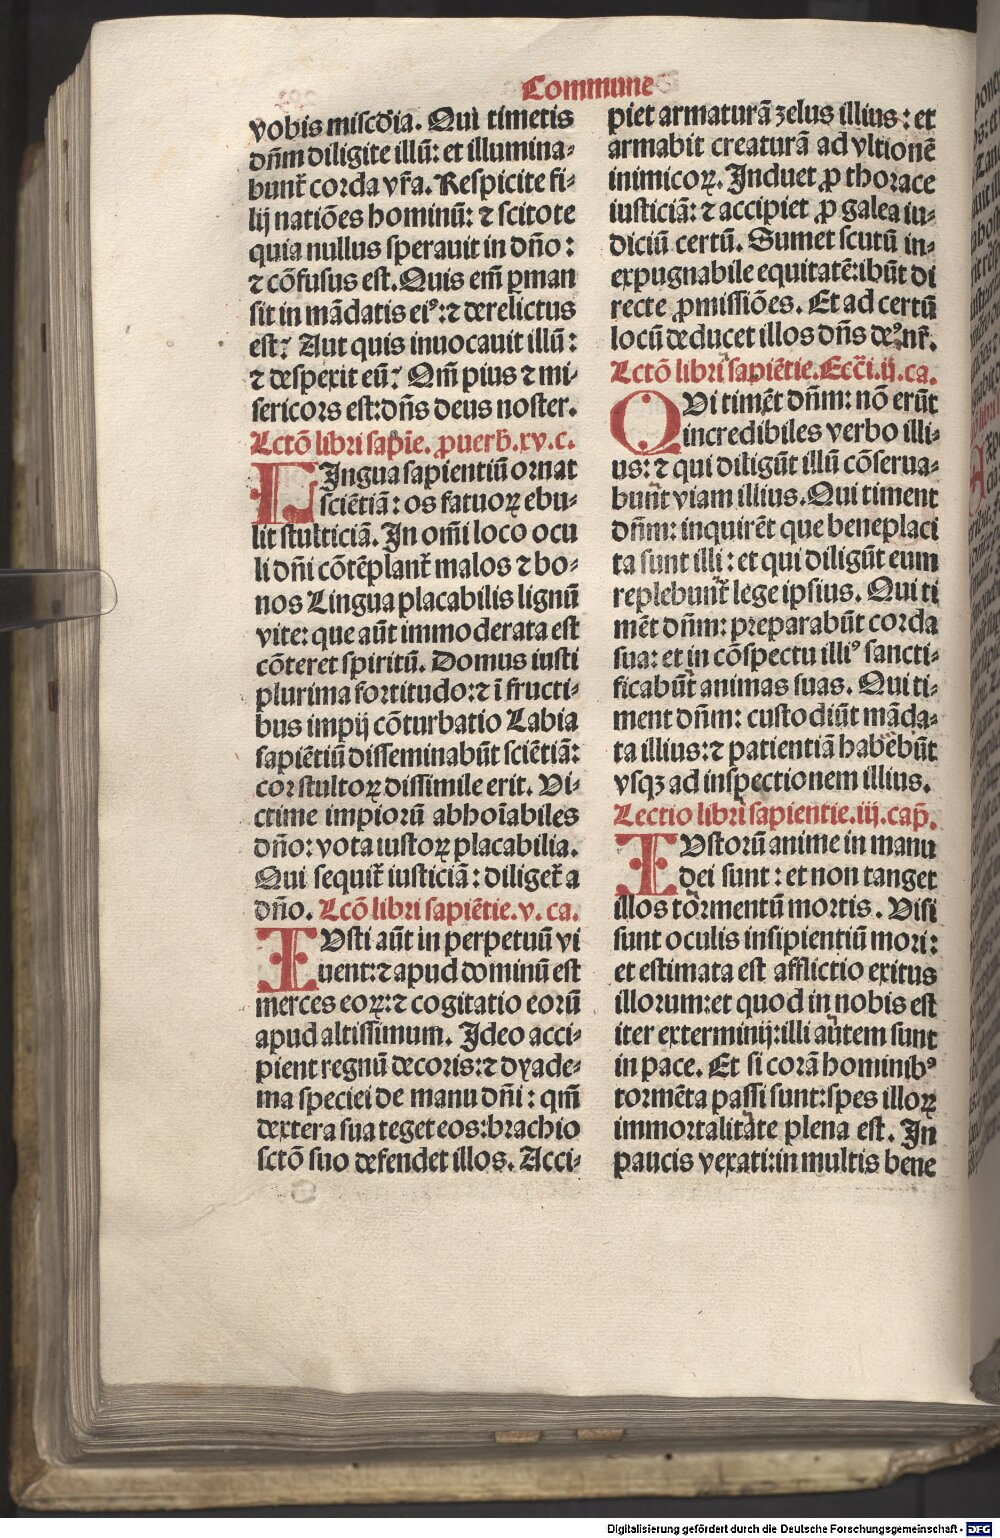 Commune
vobis miscd̄ia. Qui timetis
dn̄m diligite illū: et illumina⸗
bunt᷑ corda vr̄a. Respicite fi⸗
lij natiōes hominū: ⁊ scitote
quia nullus sperauit in dn̄o:
⁊ cōfusus est. Quis em̄ ꝑman
sit in mādatis eiꝰ: ⁊ derelictus
est? Aut quis inuocauit illū:
⁊ despexit eū? Qm̄ pius ⁊ mi⸗
sericors est: dn̄s deus noster.
Lctō libri sapiē. ꝓuerb̄. xv. c.
LIngua sapientiū ornat
sciētiā: os fatuoꝝ ebu⸗
lit stulticiā. In om̄i loco ocu
li dn̄i cōtēplant᷑ malos ⁊ bo⸗
nos Lingua placabilis lignū
vite: que aūt immoderata est
cōteret spiritū. Domus iusti
plurima fortitudo: ⁊ ī fructi⸗
bus impij cōturbatio Labia
sapiētiū disseminabūt sciētiā:
cor stultoꝝ dissimile erit. Vi⸗
ctime impiorū abhoīabiles
dn̄o: vota iustoꝝ placabilia.
Qui sequit᷑ iusticiā: diliget᷑ a
dn̄o. Lcō libri sapiētie. v. ca.
IVsti aūt in perpetuū vi
uent: ⁊ apud dominū est
merces eoꝝ: ⁊ cogitatio eorū
apud altissimum. Ideo acci⸗
pient regnū decoris: ⁊ dyade⸗
ma speciei de manu dn̄i: qm̄
dextera sua teget eos: brachio
sctō suo defendet illos. Acci⸗
piet armaturā zelus illius: et
armabit creaturā ad vltionē
inimicoꝝ. Induet ꝓ thorace
iusticiā: ⁊ accipiet ꝓ galea iu⸗
diciū certū. Sumet scutū in⸗
expugnabile equitatē: ibūt di
recte ꝓmissiōes. Et ad certū
locū deducet illos dn̄s deꝰ nr̄.
Lctō libri sapiētie. Ecc̄i. ij. ca.
QVi timēt dn̄m: nō erūt
incredibiles verbo illi⸗
us: ⁊ qui diligūt illū cōserua⸗
bunt viam illius. Qui timent
dn̄m: inquirēt que beneplaci
ta sunt illi: et qui diligūt eum
replebunt᷑ lege ipsius. Qui ti
mēt dn̄m: preparabūt corda
sua: et in cōspectu illiꝰ sancti⸗
ficabūt animas suas. Qui ti⸗
ment dn̄m: custodiūt māda⸗
ta illius: ⁊ patientiā habebūt
vsqꝫ ad inspectionem illius.
Lectio libri sapientie. iij. cap̄.
IVstorū anime in manu
dei sunt: et non tanget
illos tormentū mortis. Visi
sunt oculis insipientiū mori:
et estimata est afflictio exitus
illorum: et quod in nobis est
iter exterminij: illi autem sunt
in pace. Et si corā hominibꝰ
tormēta passi sunt: spes illoꝝ
immortalitate plena est. In
paucis vexati: in multis bene
Digitalisierung gefördert durch die Deutsche Forschungsgemeinschaft - DFG